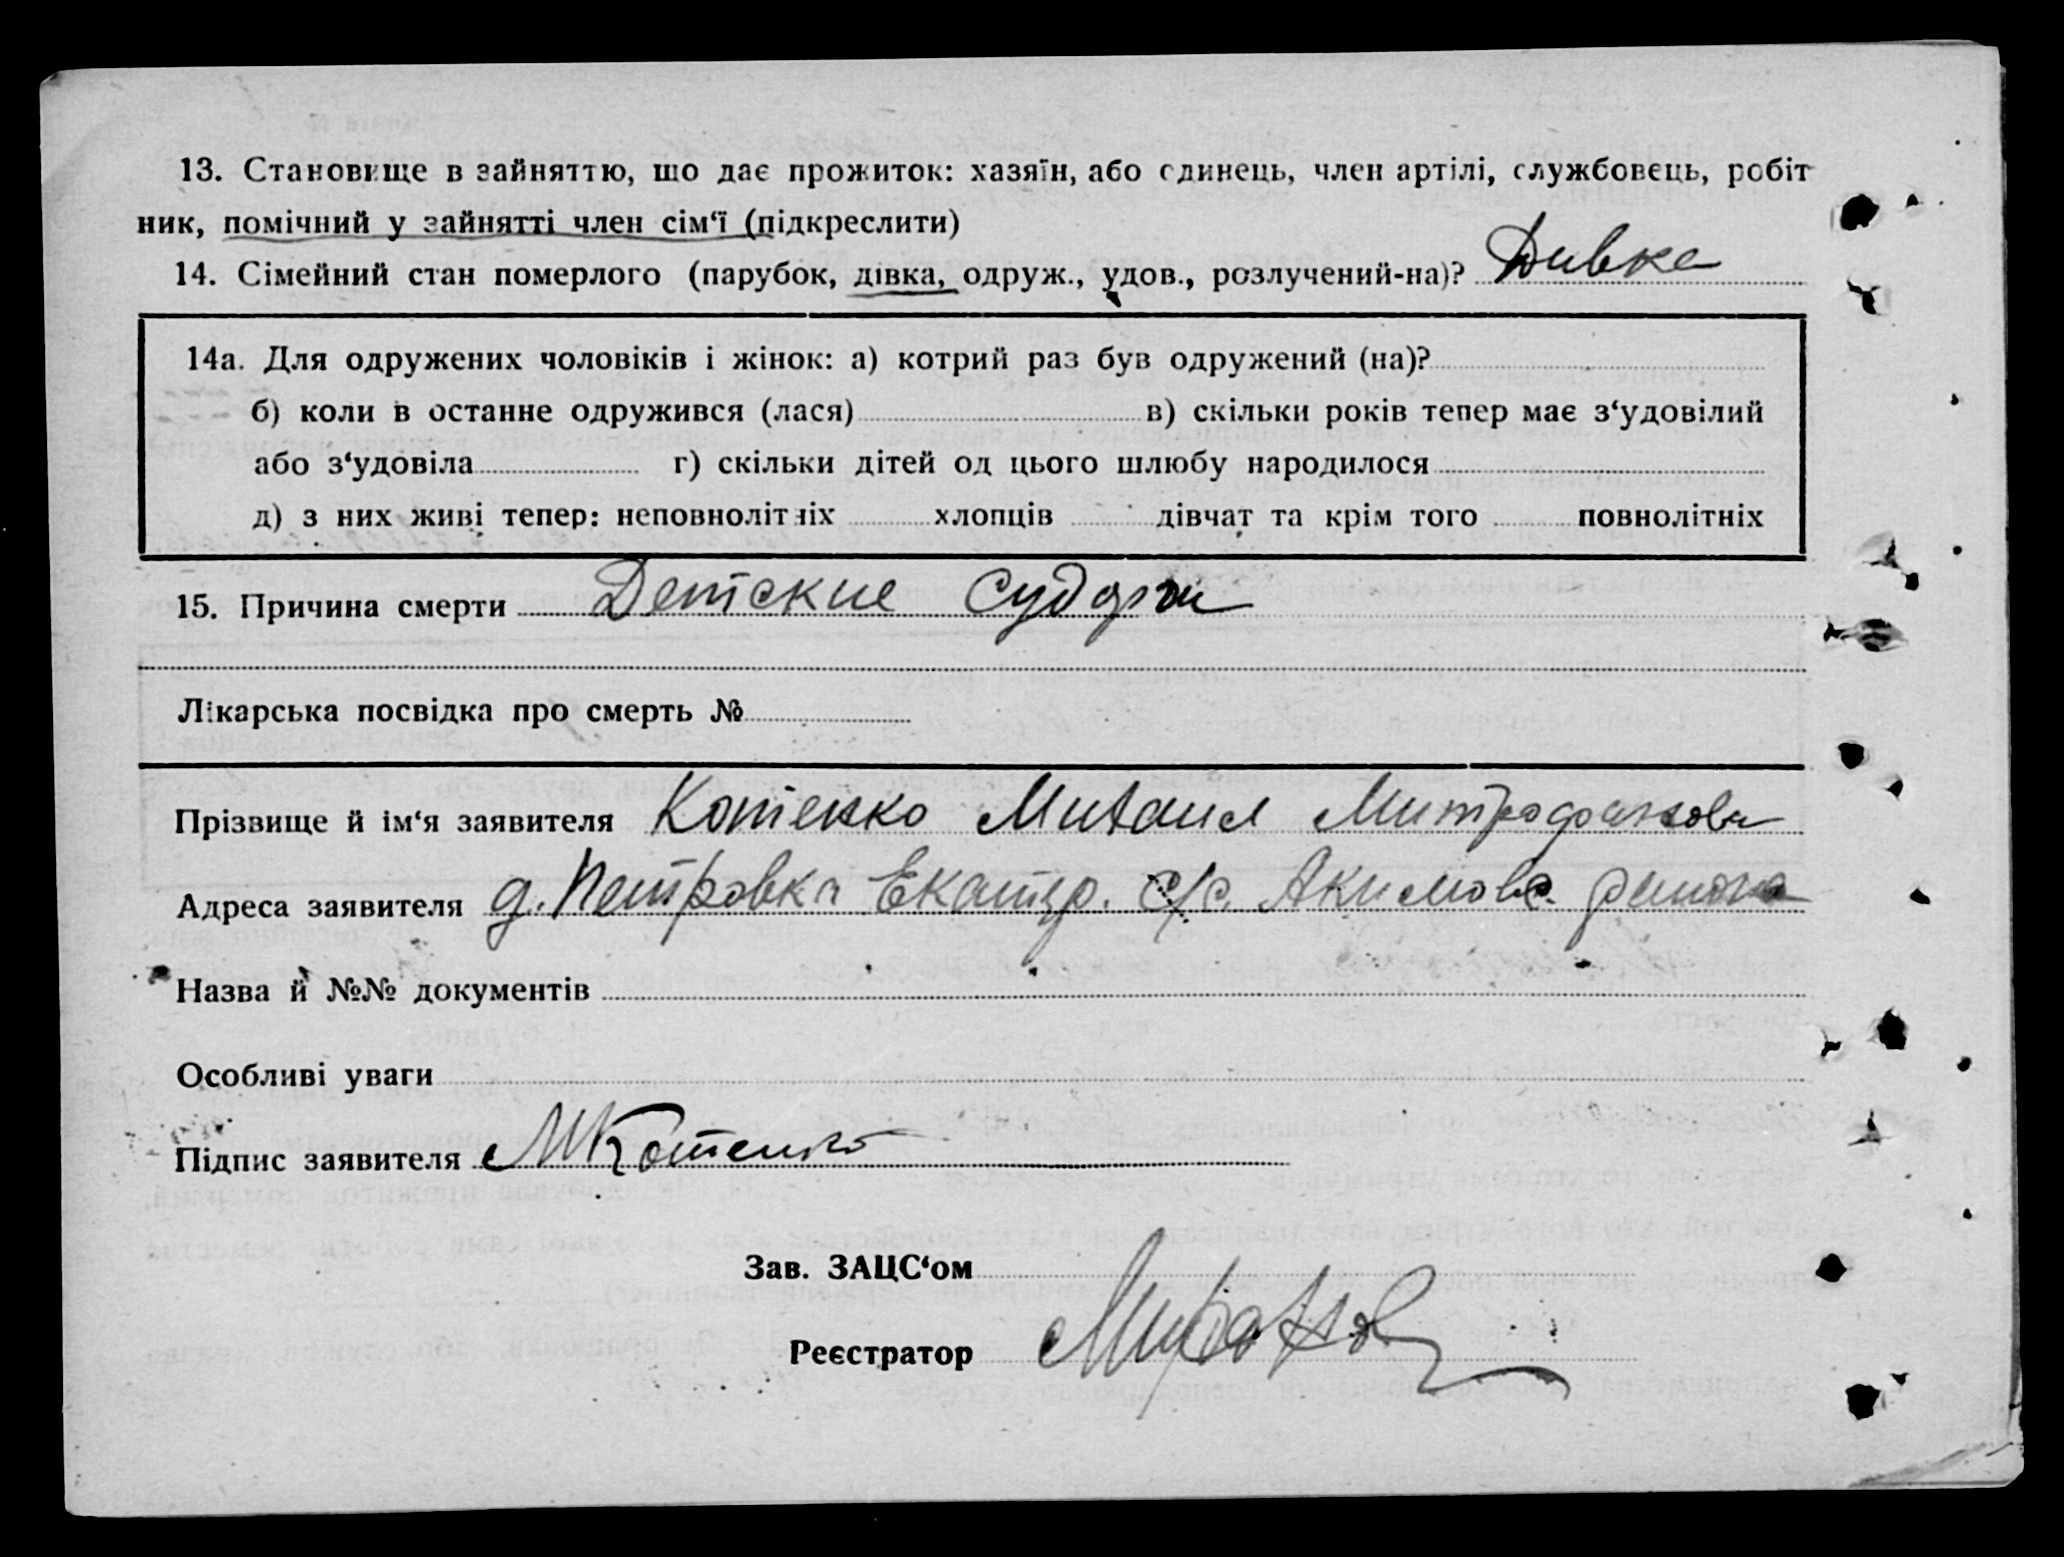 13. Становище в зайняттю, що дає прожиток: хазяїн, або єдинець, член артілі, службовець, робіт
ник, помічний у зайнятті член сім‘ї (підкреслити)
14. Сімейний стан померлого (парубок, дівка, одруж., удов., розлучений-на)? Дивка
14а. Для одружених чоловіків і жінок: а) котрий раз був одружений (на)?
б) коли в останне одружився (лася) в) скільки років тепер має з‘удовілий
або з‘удовіла г) скільки дітей од цього шлюбу народилося
д) з них живі тепер: неповнолітніх хлопців дівчат та крім того повнолітніх
15. Причина смерти Детские Судорги
Лікарська посвідка про смерть №
Прізвище й ім‘я заявителя Котенко Михаил Митрофанович
Адреса заявителя д. Петровка Екатер. с/с. Акимовс. района
Назва й №№ документів
Особливі уваги
Підпис заявителя МКотенко
Зав. ЗАЦС‘ом
Реєстратор